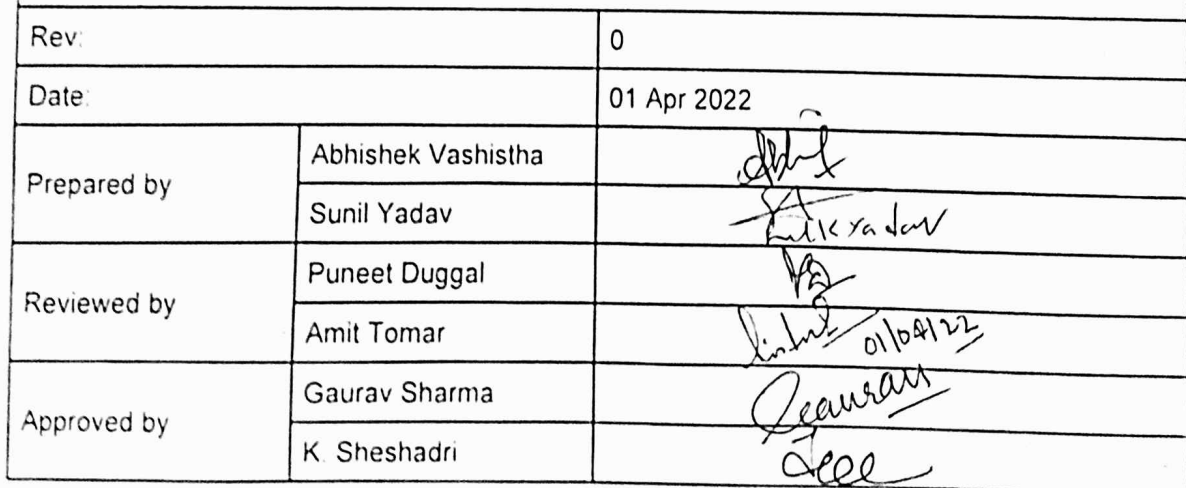 Rev: 0
Date: 01 Apr 2022
Prepared by
Abhishek Vashistha
Sunil Yadav
Reviewed by
Puneet Duggal
Amit Tomar 01/04/22
Approved by
Gaurav Sharma Gaurav
K. Sheshadri